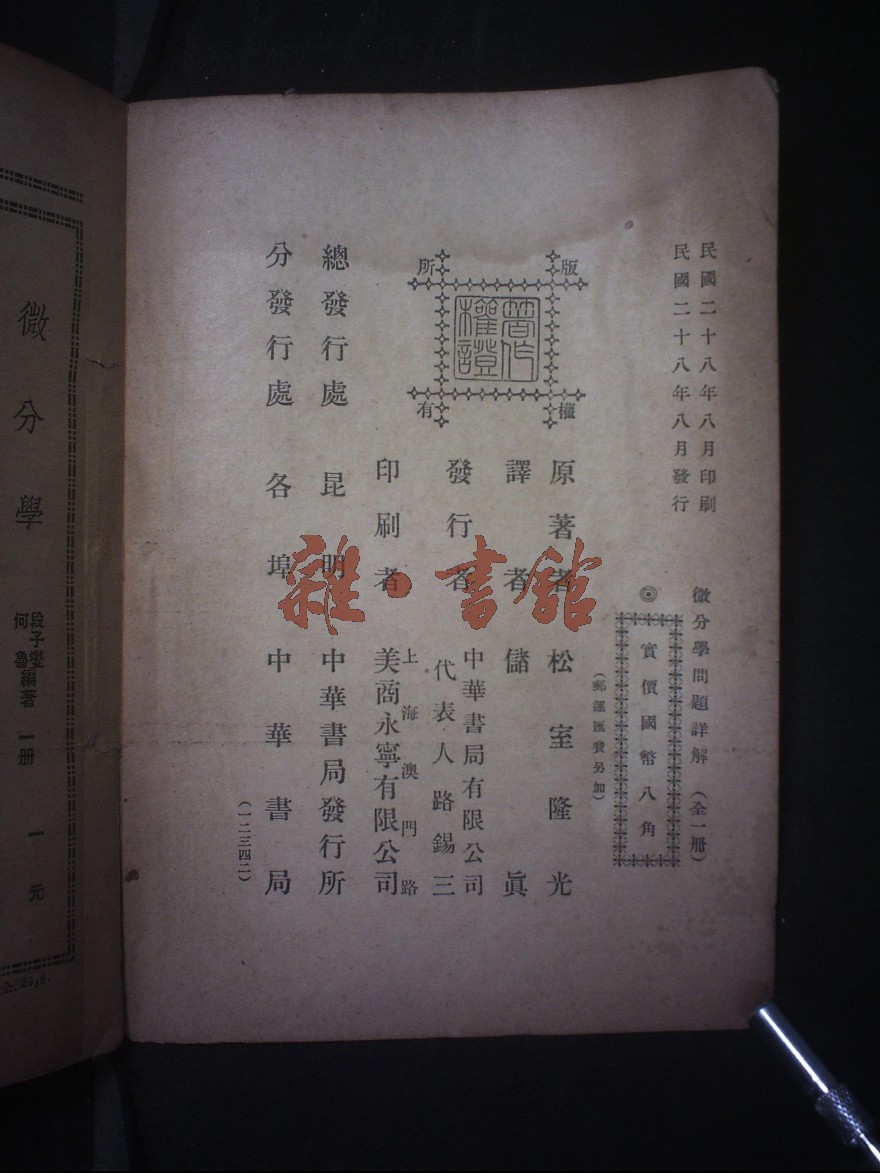 民國二十八年八月印刷
民國二十八年八月發行
微分學問題詳解(全一册)
◎實價國幣八角
(郵運匯費另加)
版權所有
著作權證
原著者 松室隆光
譯者 儲眞
發行者 中華書局有限公司
代表人路錫三
印刷者 上海澳門路
美商永寧有限公司
總發行處 昆明 中華書局發行所
分發行處 各埠 中華書局
(一二三四二)
雜·書館
微分學
段子燮
何魯 編著 一册 一元